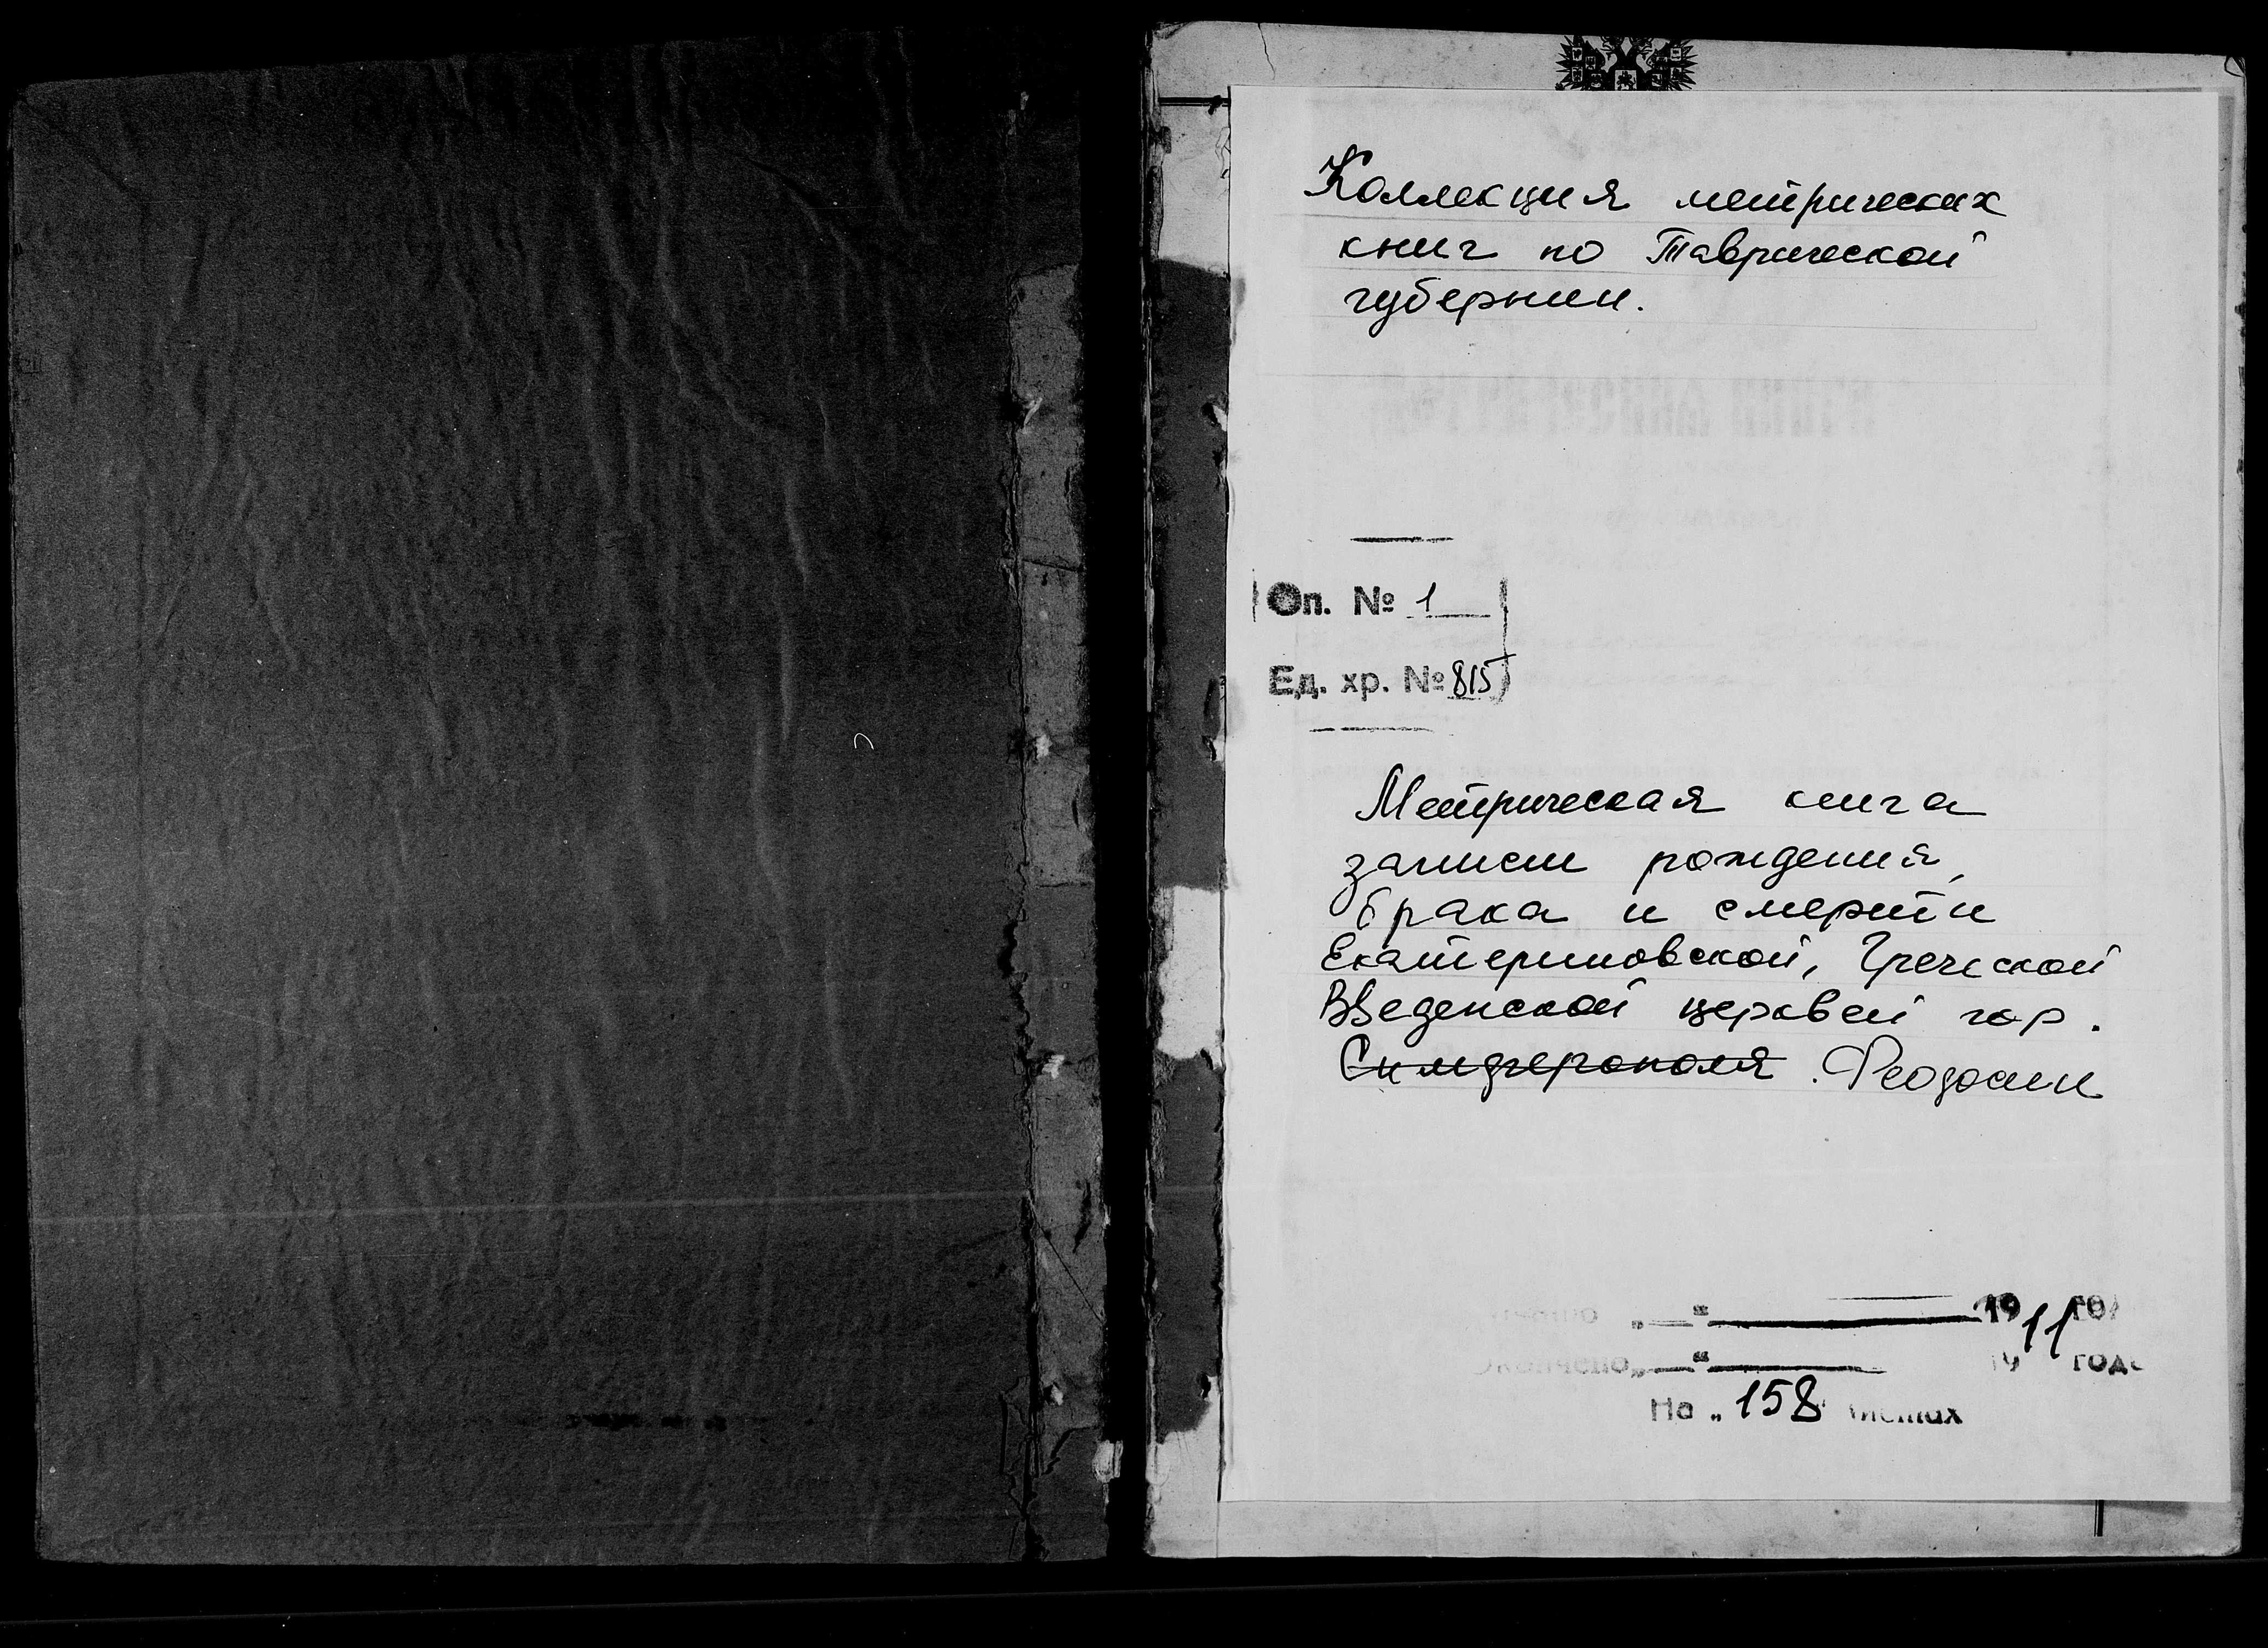 Коллекция метрических
книг по Таврической
губернии.
Оп. № 1
Ед. хр. № 815
Метрическая книга
записи рождения,
брака и смерти
Екатериновской, Греческой
Введенской церквей гор.
Симферополя . Феодосии
„—“ 1911 го
Окончено „—“ 19 года
На „ 158 листах